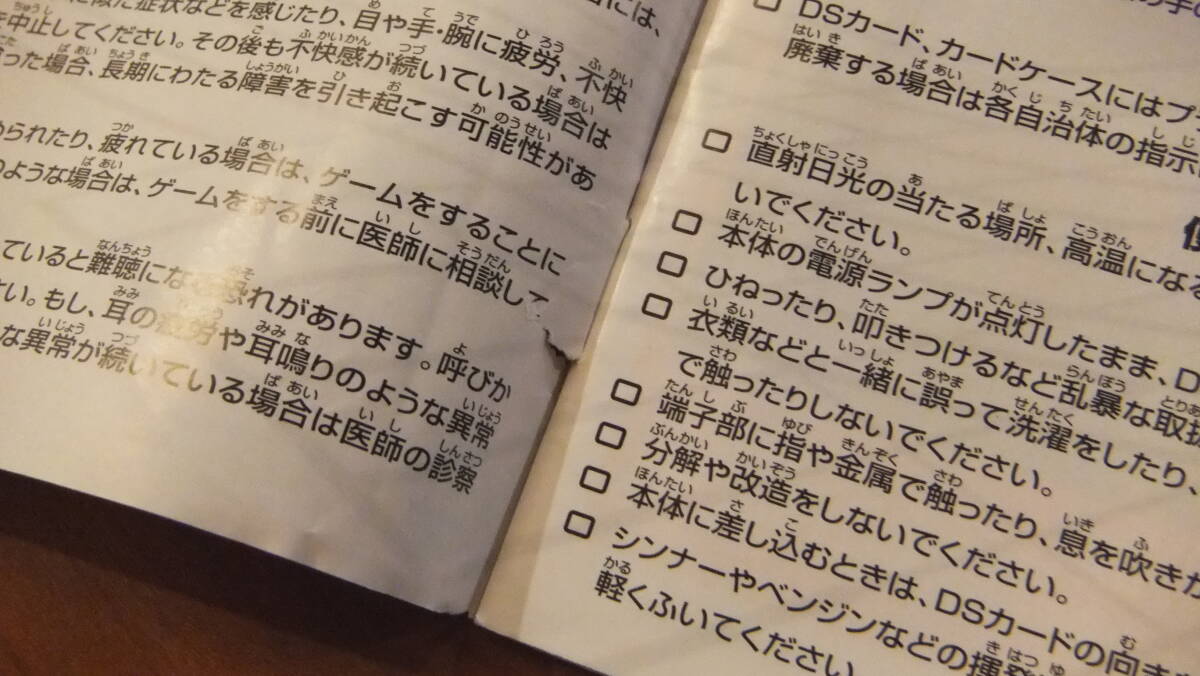 に似た症状などを感じたり、目や手・腕に疲労、不快
を中止してください。その後も不快感が続いている場合は
った場合、長期にわたる障害を引き起こす可能性があ
められたり、疲れている場合は、ゲームをすることに
のような場合は、ゲームをする前に医師に相談して
ていると難聴になる恐れがあります。呼びか
さい。もし、耳の疲労や耳鳴りのような異常
な異常が続いている場合は医師の診察
□ DSカード、カードケースにはプ
廃棄する場合は各自治体の指示
□ 直射日光の当たる場所、高温になる
いでください。
□ 本体の電源ランプが点灯したまま、D
□ ひねったり、叩きつけるなど乱暴な取扱
□ 衣類などと一緒に誤って洗濯をしたり、
で触ったりしないでください。
□ 端子部に指や金属で触ったり、息を吹きか
□ 分解や改造をしないでください。
□ 本体に差し込むときは、DSカードの向き
□ シンナーやベンジンなどの揮発
軽くふいてください